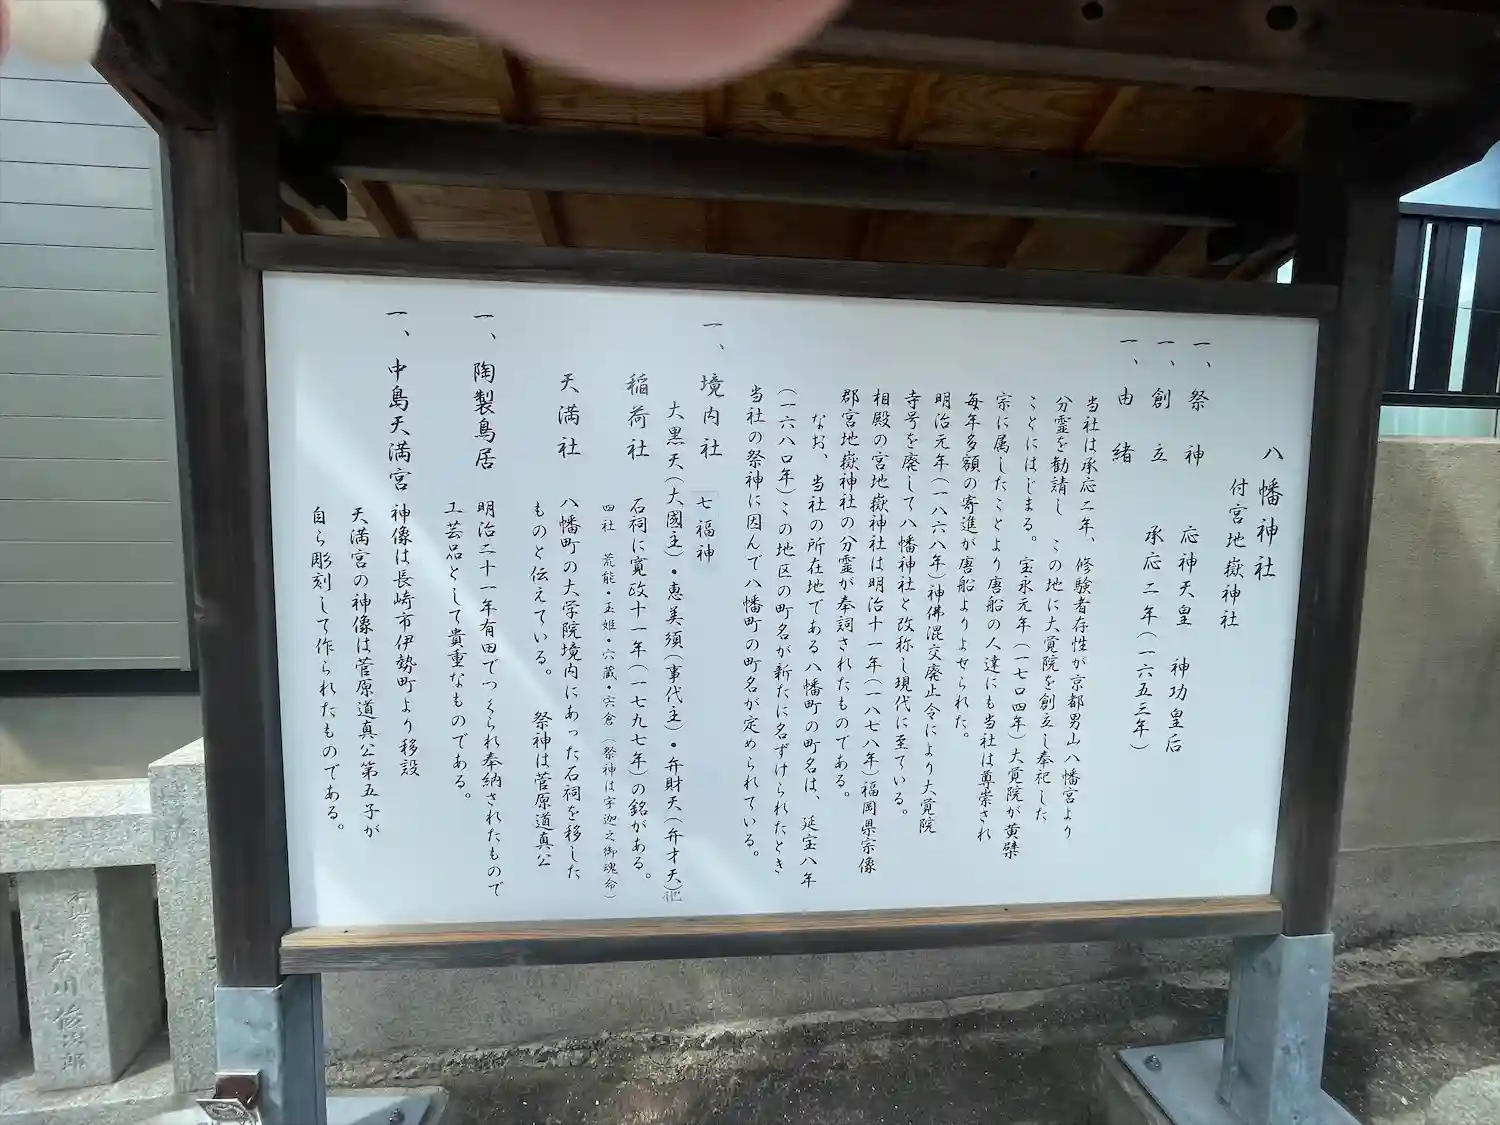 八幡神社
付宮地嶽神社
一、祭神 応神天皇 神功皇后
一、創立 承応二年(一六五三年)
一、由緒
当社は承応二年、修験者存性が京都男山八幡宮より
分霊を勧請し この地に大覚院を創立し奉祀した
ことにはじまる。宝永元年(一七〇四年)大覚院が黄檗
宗に属したことより唐船の人達にも当社は尊崇され
毎年多額の寄進が唐船よりよせられた。
明治元年(一八六八年)神佛混交廃止令により大覚院
寺号を廃して八幡神社と改称し現代に至ている。
相殿の宮地嶽神社は明治十一年(一八七八年)福岡県宗像
郡宮地嶽神社の分霊が奉詞されたものである。
なお、当社の所在地である八幡町の町名は、延宝八年
(一六八〇年)この地区の町名が新たに名ずけられたとき
当社の祭神に因んで八幡町の町名が定められている。
一、境内社 七福神
大黒天(大國主)・恵美須(事代主)・弁財天(弁才天)他
稲荷社 石祠に寛政十一年(一七九七年)の銘がある。
四社 荒能・玉姫・穴蔵・宍倉(祭神は宇迦之御魂命)
天満社 八幡町の大学院境内にあった石祠を移した
ものと伝えている。 祭神は菅原道真公
一、陶製鳥居 明治二十一年有田でつくられ奉納されたもので
工芸品として貴重なものである。
一、中島天満宮 神像は長崎市伊勢町より移設
天満宮の神像は菅原道真公第五子が
自ら彫刻して作られたものである。